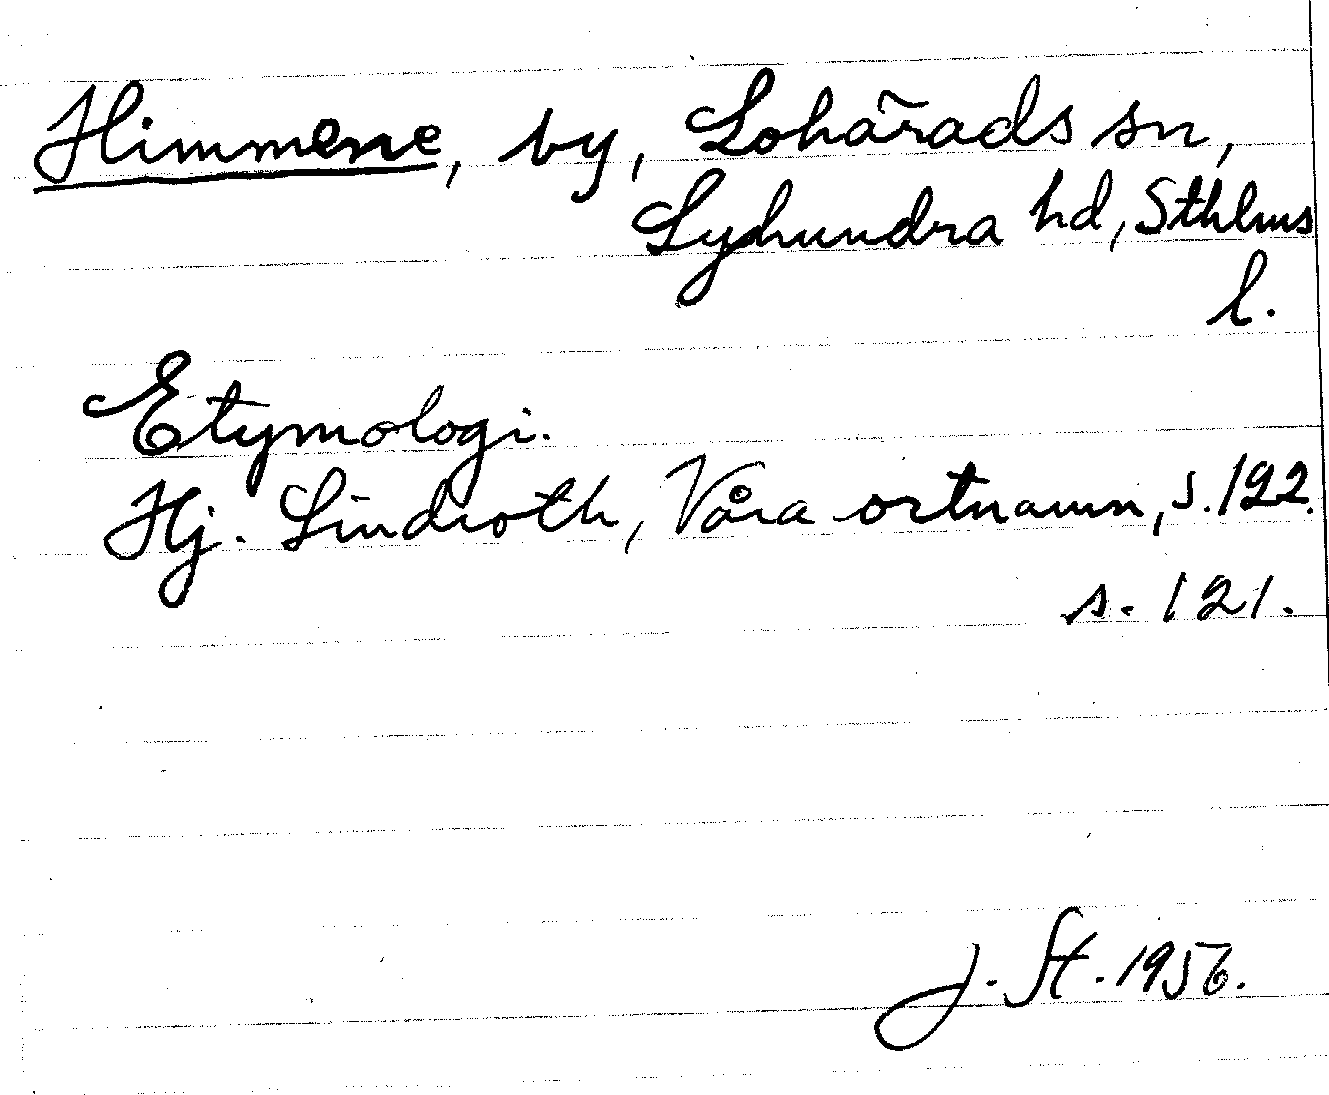 Himmene, by, Lohärads sn,
Lyhundra hd, Sthlms
l.
Etymologi.
Hj. Lindroth, Våra ortnamn, s. 122.
s. 121.
J. St. 1956.